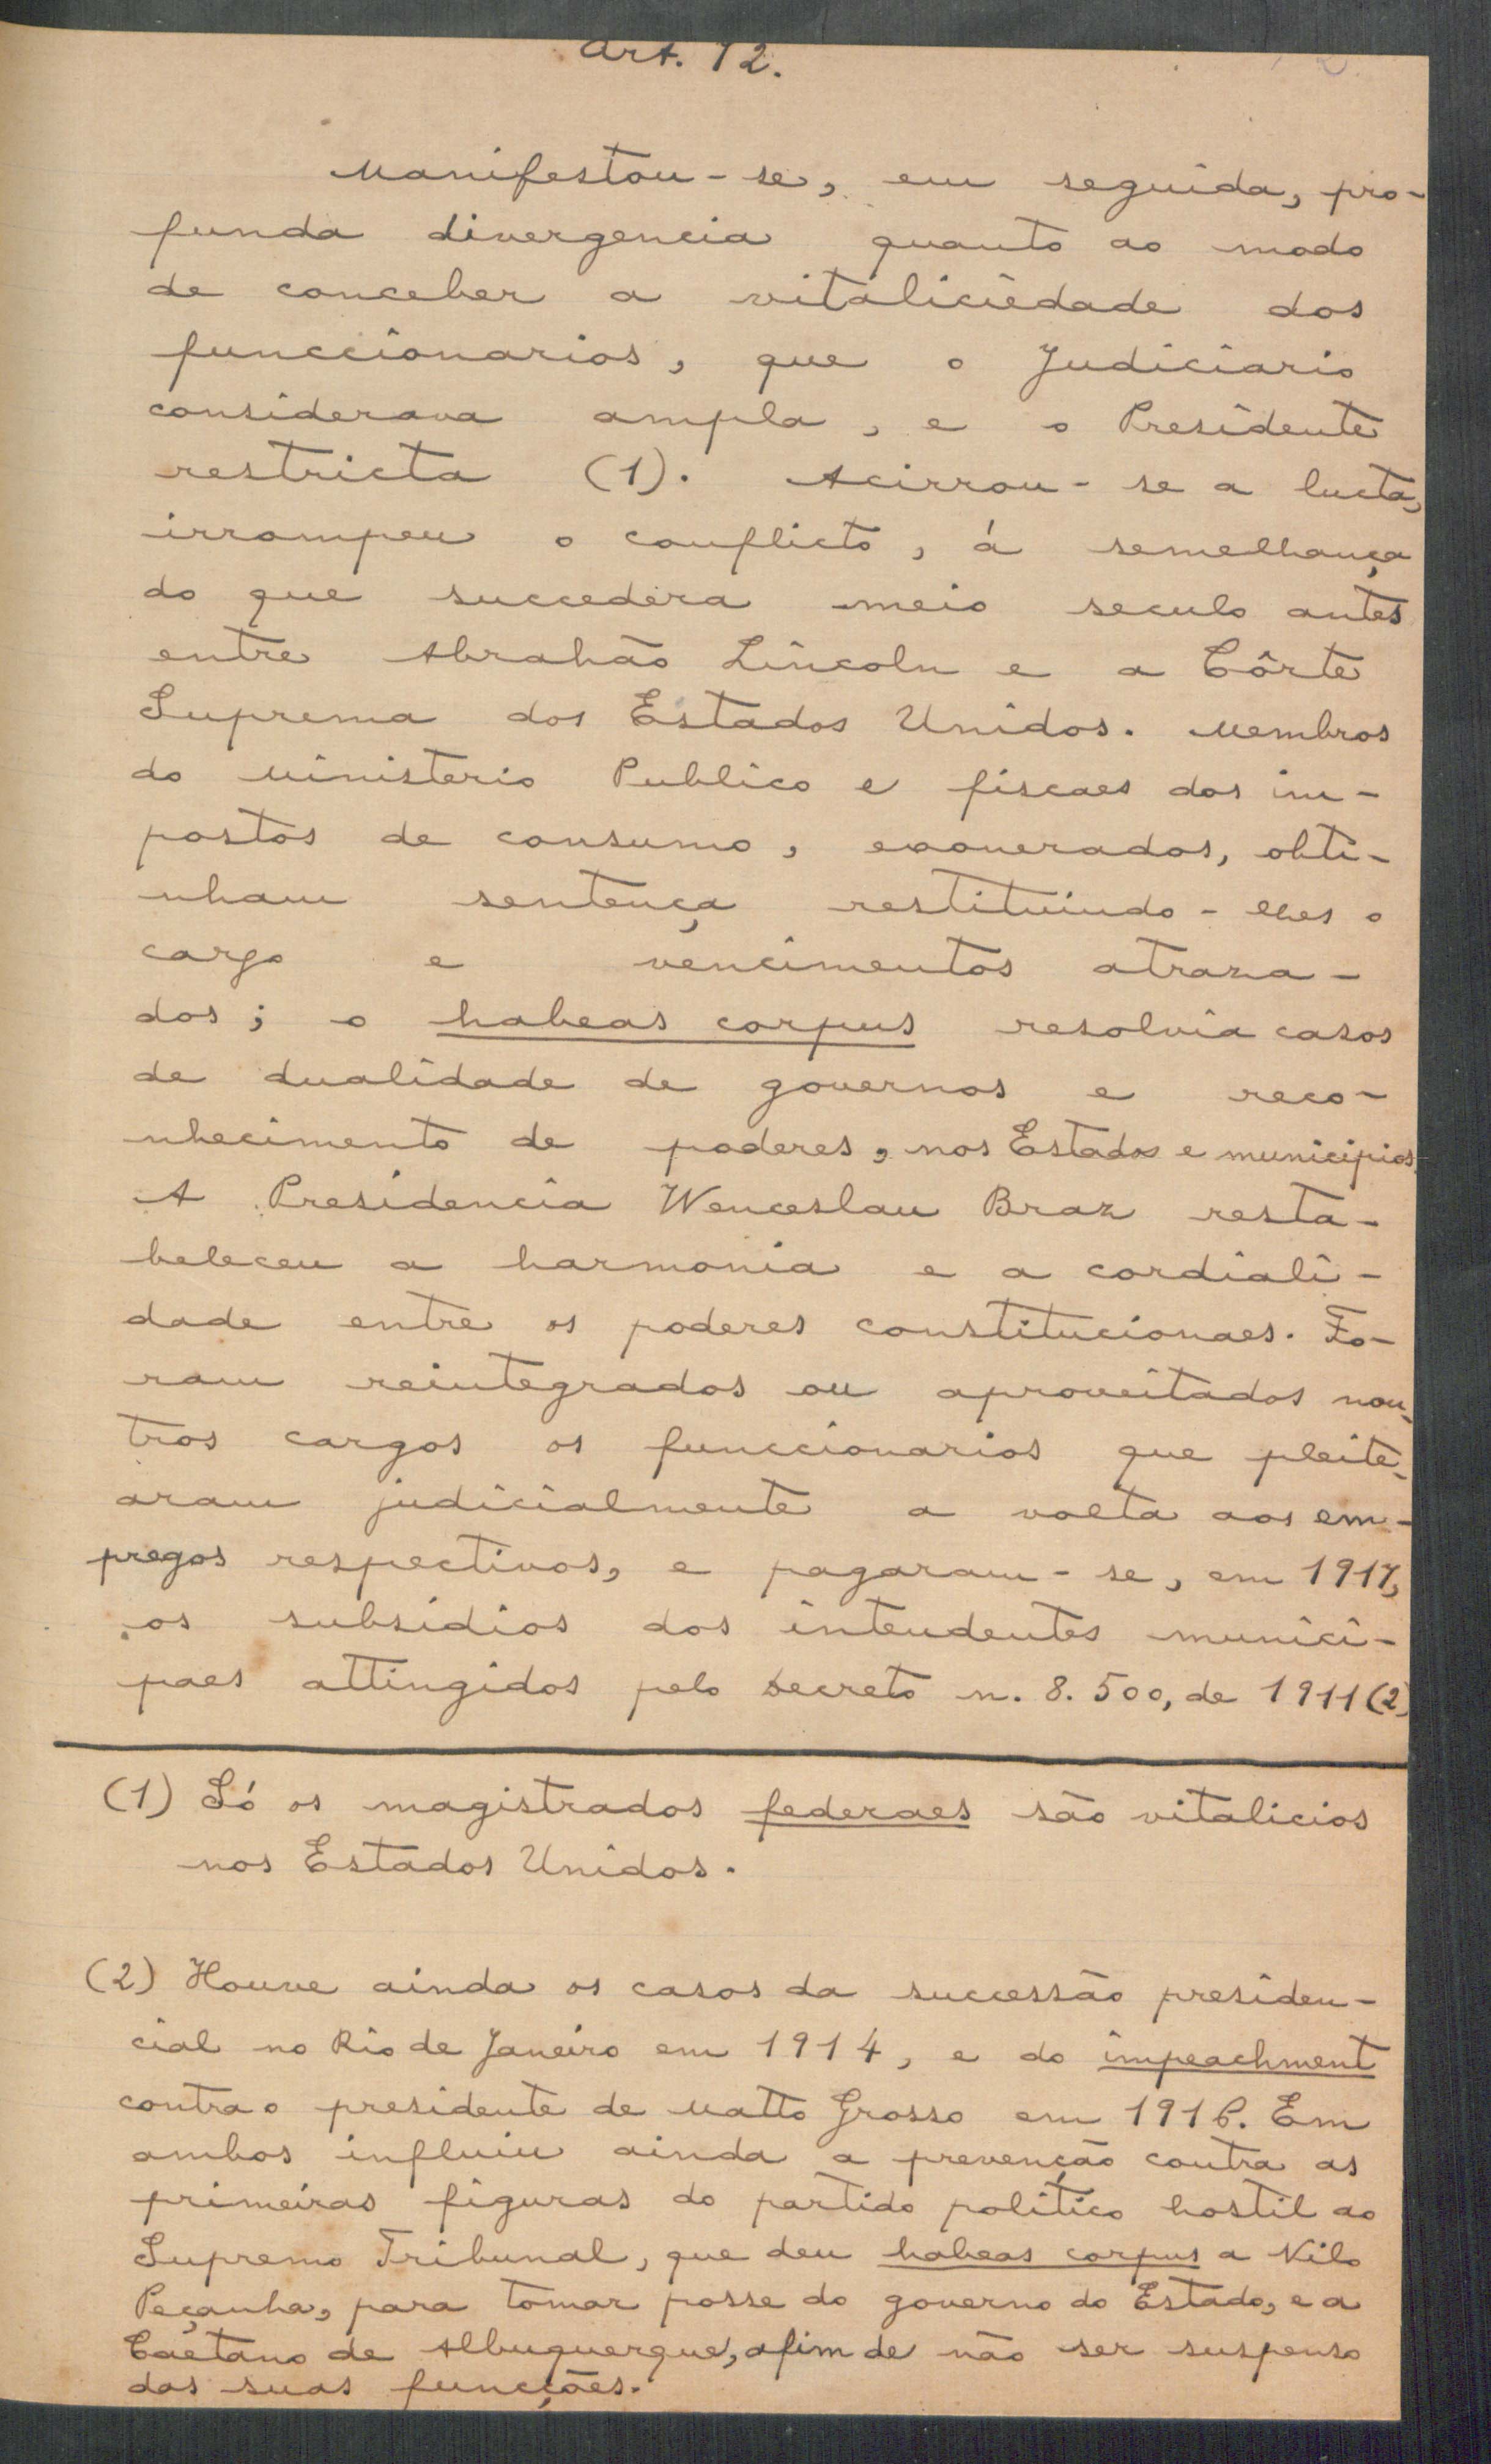 Art. 72.
Manifestou-se, em seguida, pro-
funda divergencia quanto ao modo
de conceber a vitaliciedade dos
funccionarios, que o Judiciario
considerava ampla, e o Presidente
restricta (1). Acirrou-se a lucta,
irrompeu o conflicto, á semelhança
do que succedera meio seculo antes
entre Abrahão Lincoln e a Côrte
Suprema dos Estados Unidos. Membros
do Ministerio Publico e fiscaes dos im-
postos de consumo, exonerados, obti-
nham sentença restituindo-lhes o
cargo e vencimentos atraza-
dos; o habeas corpus resolvia casos
de dualidade de governos e reco-
nhecimento de poderes, nos Estados e municipios.
A Presidencia Wenceslau Braz resta-
beleceu a harmonia e a cordiali-
dade entre os poderes constitucionaes. Fo-
ram reintegrados ou aproveitados nou-
tros cargos os funccionarios que pleite-
aram judicialmente a volta aos em-
pregos respectivos, e pagaram-se, em 1917,
os subsidios dos intendentes munici-
paes attingidos pelo Decreto n. 8.500, de 1911 (2)
(1) Só os magistrados federaes são vitalicios
nos Estados Unidos.
(2) Houve ainda os casos da successão presiden-
cial no Rio de Janeiro em 1914, e do impeachment
contra o presidente de Matto Grosso em 1916. Em
ambos influiu ainda a prevenção contra as
primeiras figuras do partido politico hostil ao
Supremo Tribunal, que deu habeas corpus a Nilo
Peçanha, para tomar posse do governo do Estado, e a
Caetano de Albuquerque, afim de não ser suspenso
das suas funcções.